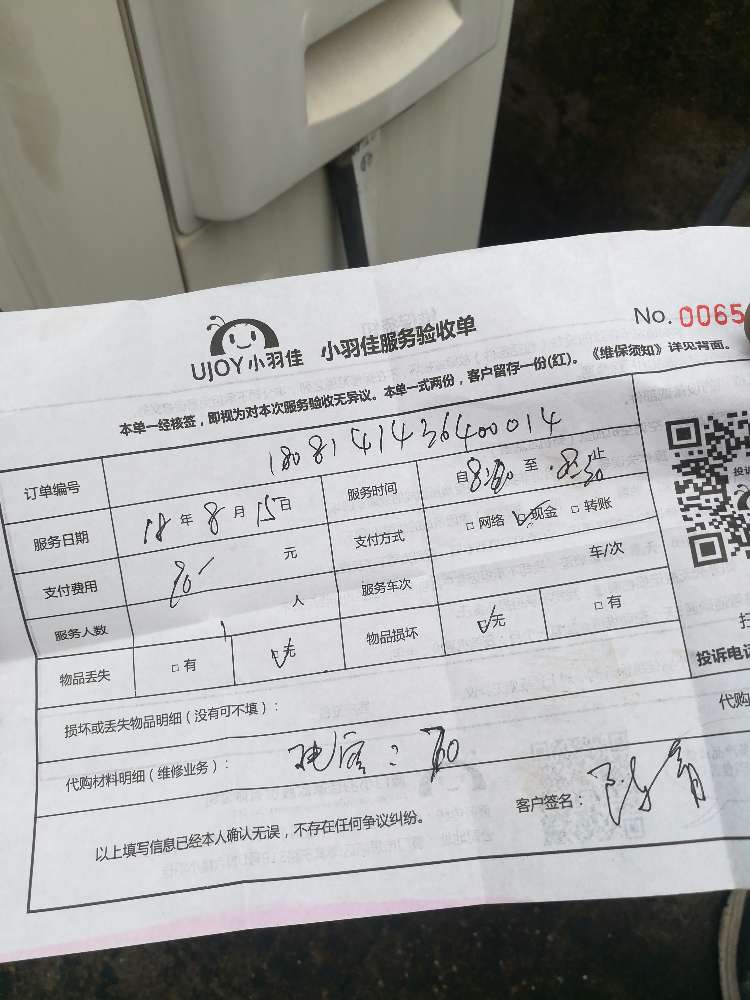 UJOY小羽佳 小羽佳服务验收单 No. 0065
本单一经核签，即视为对本次服务验收无异议。本单一式两份，客户留存一份(红)。《维保须知》详见背面。
订单编号 1808141436400014
服务日期 18 年 8 月 15 日 服务时间 自 8:00 至 8:30 止
支付费用 80 元 支付方式 □网络 ☑现金 □转账
服务人数 1 人 服务车次 车/次
物品丢失 □有 ☑无 物品损坏 ☑无 □有
投诉电话
损坏或丢失物品明细（没有可不填）：
代购
代购材料明细（维修业务）：
以上填写信息已经本人确认无误，不存在任何争议纠纷。 客户签名：